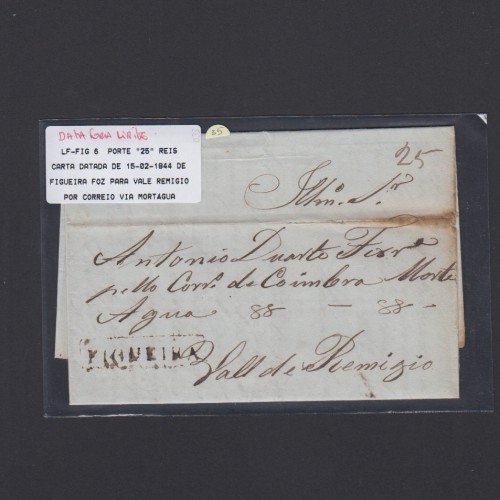 Data fora limite
LF-FIG 6 PORTE "25" REIS
CARTA DATADA DE 15-02-1844 DE
FIGUEIRA FOZ PARA VALE REMIGIO
POR CORREIO VIA MORTAGUA
85
25
Illmo. Sr.
Antonio Duarte Ferra
pello Corro. de Coimbra Morte
Agua 88 - 88 -
FIGUEIRA
Vall de Remigio